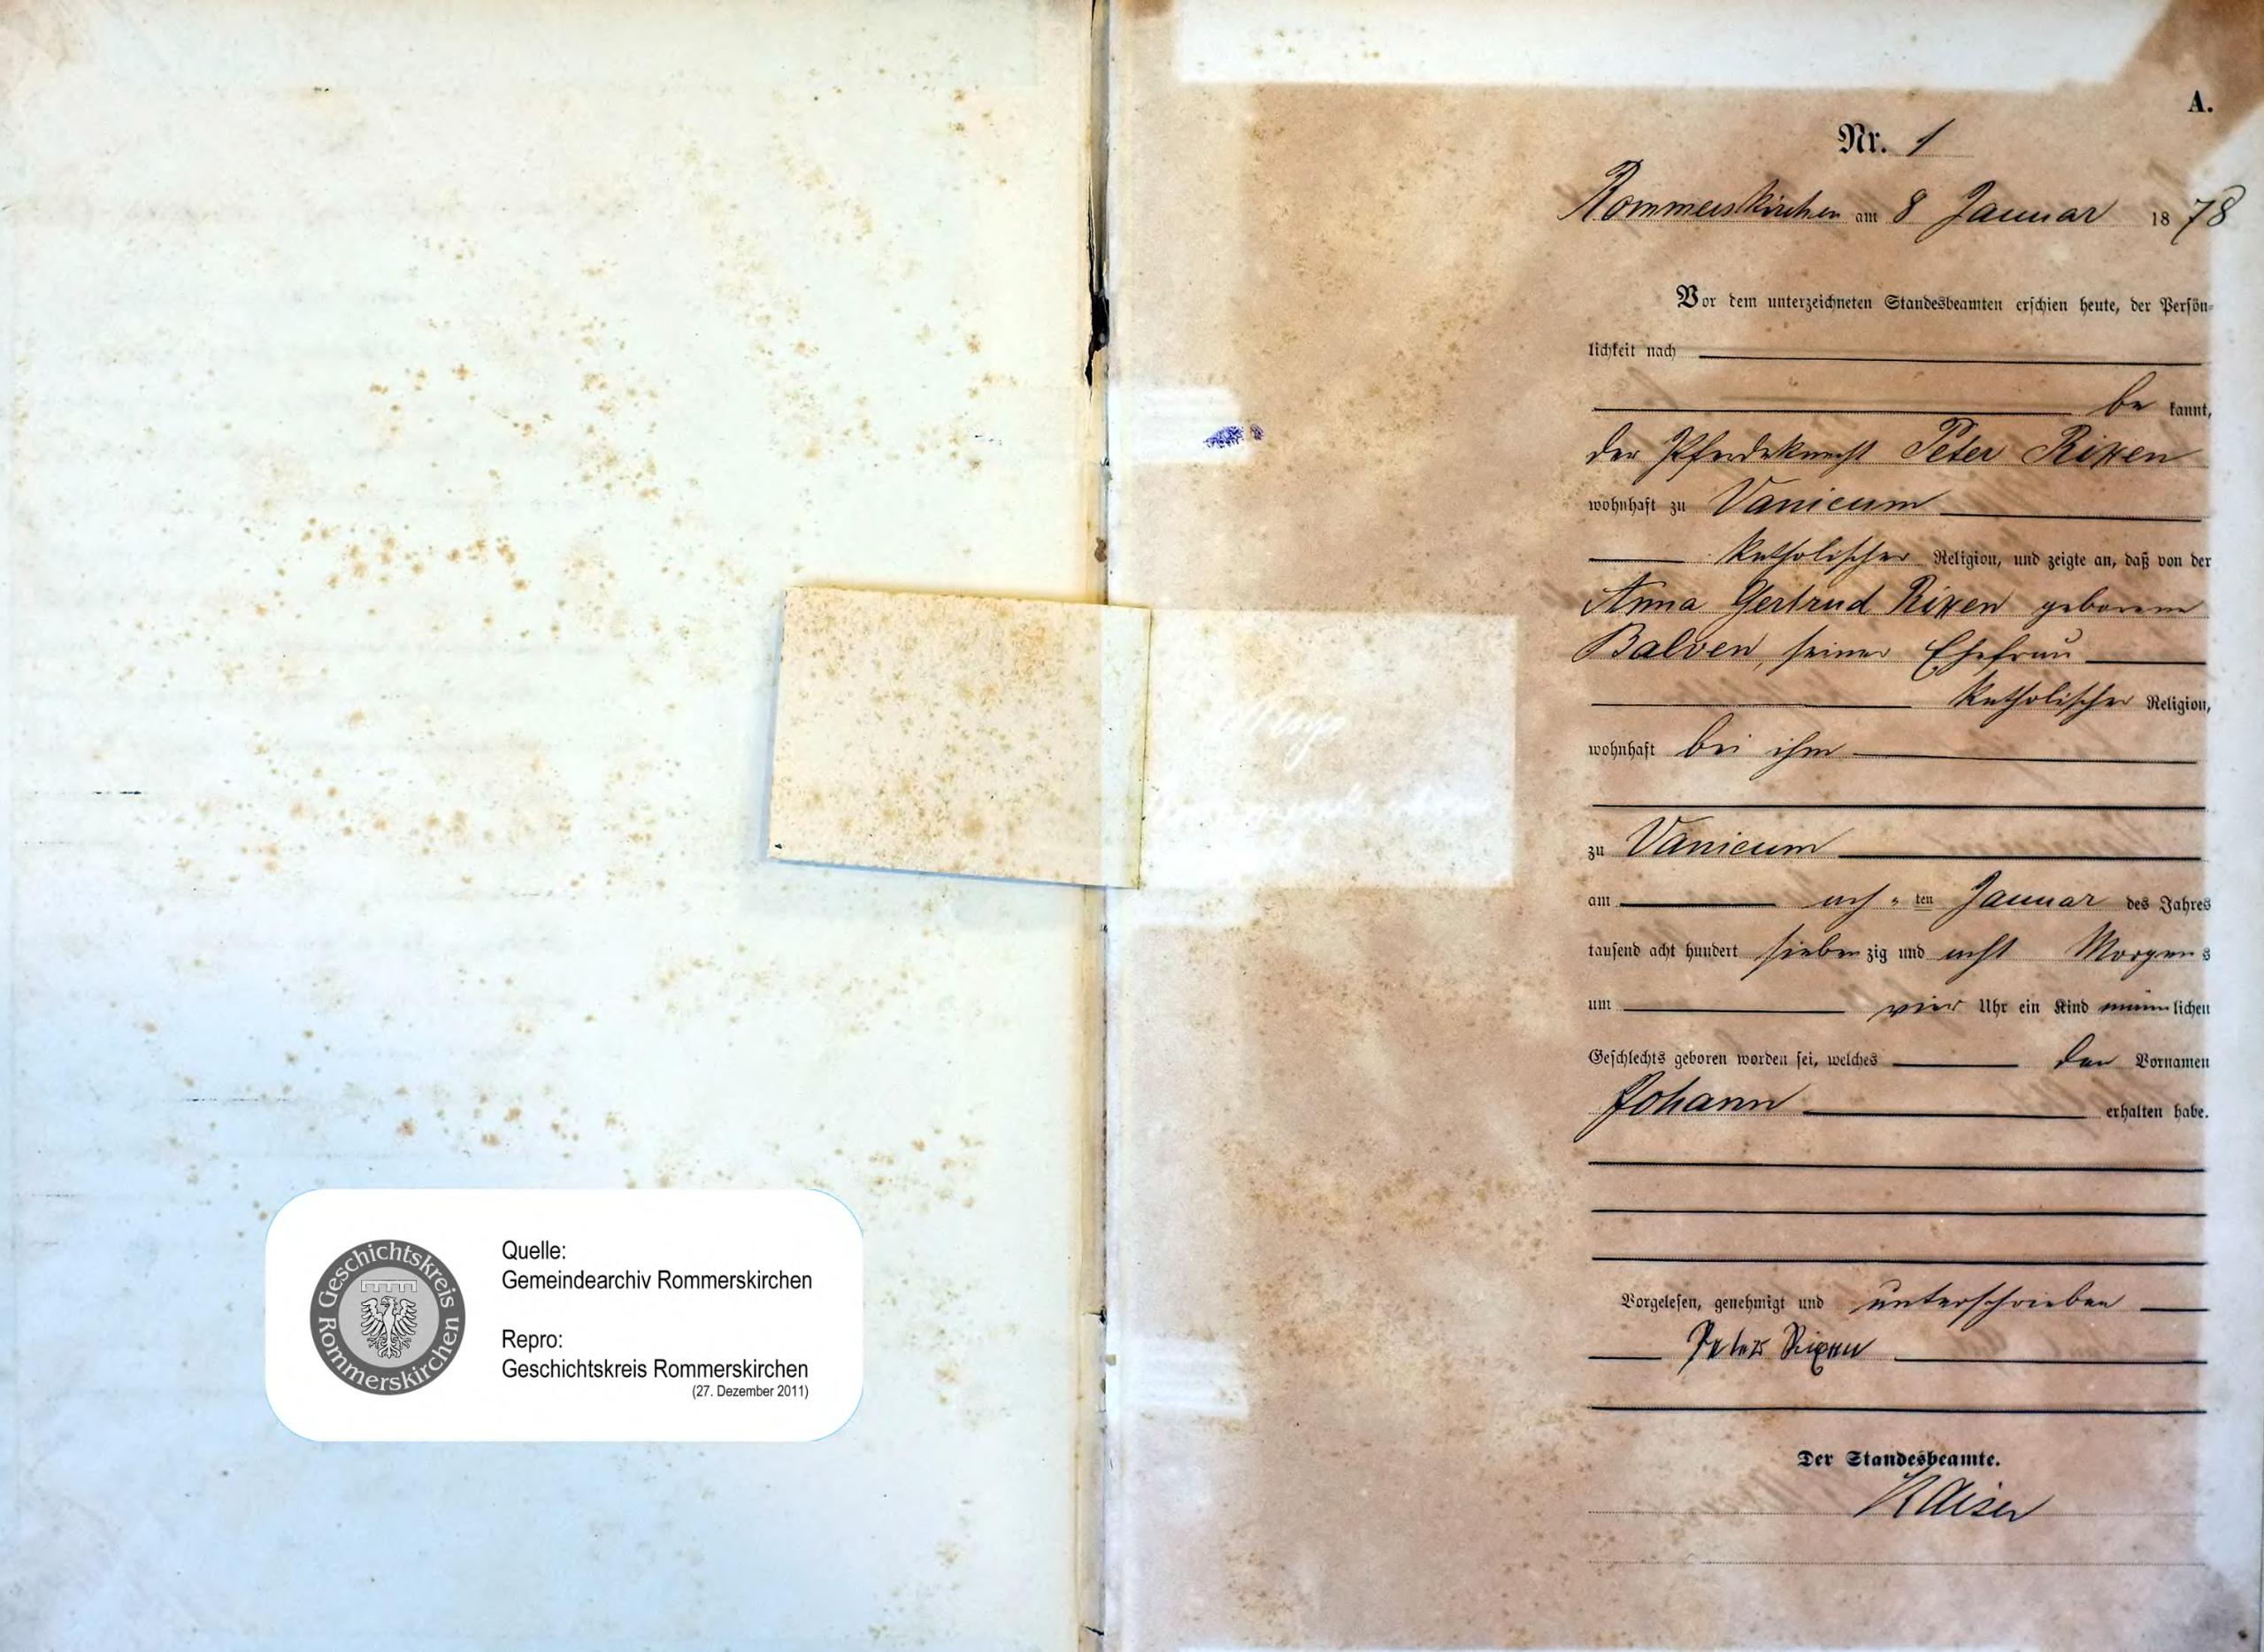 Geschichtskreis Rommerskirchen
Quelle:
Gemeindearchiv Rommerskirchen
Repro:
Geschichtskreis Rommerskirchen
(27. Dezember 2011)
A.
Nr. 1
Rommerskirchen am 8 Januar 1878
Vor dem unterzeichneten Standesbeamten erschien heute, der Persön-
lichkeit nach
be kannt,
der Pferdeknecht Peter Rixen
wohnhaft zu Vanicum
katholischer Religion, und zeigte an, daß von der
Anna Gertrud Rixen geborene
Balven, seiner Ehefrau
katholischer Religion,
wohnhaft bei ihm
zu Vanicum
am ach ten Januar des Jahres
tausend acht hundert sieben zig und acht Morgens
um vier Uhr ein Kind männlichen
Geschlechts geboren worden sei, welches den Vornamen
Johann erhalten habe.
Vorgelesen, genehmigt und unterschrieben
Peter Rixen
Der Standesbeamte.
Kaiser